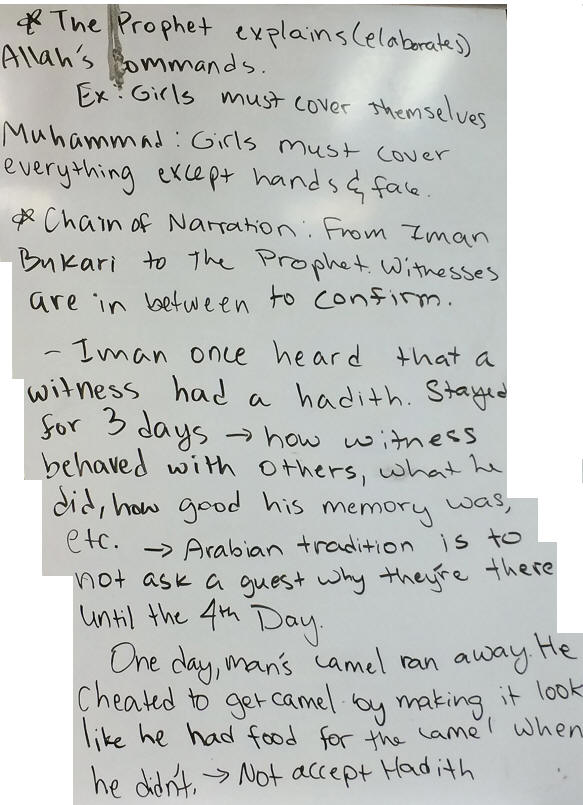 * The Prophet explains (elaborates)
Allah's commands.
Ex: Girls must cover themselves
Muhammad: Girls must cover
everything except hands & face.
* Chain of Narration: From Iman
Bukari to The Prophet. Witnesses
are in between to confirm.
- Iman once heard that a
witness had a hadith. Stayed
for 3 days → how witness
behaved with others, what he
did, how good his memory was,
etc. → Arabian tradition is to
not ask a guest why they're there
until the 4th Day.
One day, man's camel ran away. He
cheated to get camel by making it look
like he had food for the camel when
he didn't. → Not accept Hadith